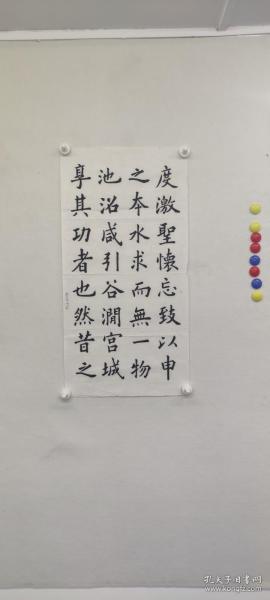 度激聖懷忘致以申
之本水求而無一物
池沼咸引谷澗宫城
享其功者也然昔之
孔夫子旧书网
www.kongfz.com